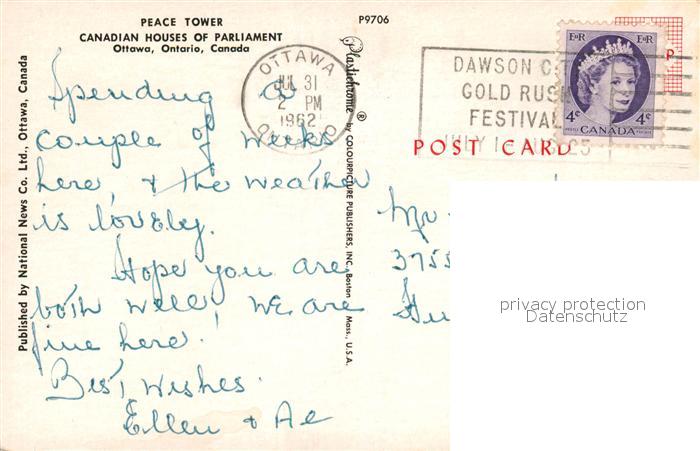 PEACE TOWER
CANADIAN HOUSES OF PARLIAMENT
Ottawa, Ontario, Canada
P9706
Published by National News Co. Ltd., Ottawa, Canada
Spending a
couple of weeks
here, & the weather
is lovely.
Hope you are
both well, we are
fine here.
Best Wishes.
Ellen & Al
OTTAWA
JUL 31
2 PM
1962
ONTARIO
Plastichrome ® by COLOURPICTURE PUBLISHERS, INC., Boston, Mass., U.S.A.
DAWSON C
GOLD RUSH
FESTIVAL
JULY 1
E II R E II R
4¢ 4¢
POSTES CANADA POSTAGE
P
POST CARD
Mr
3755
privacy protection
Datenschutz